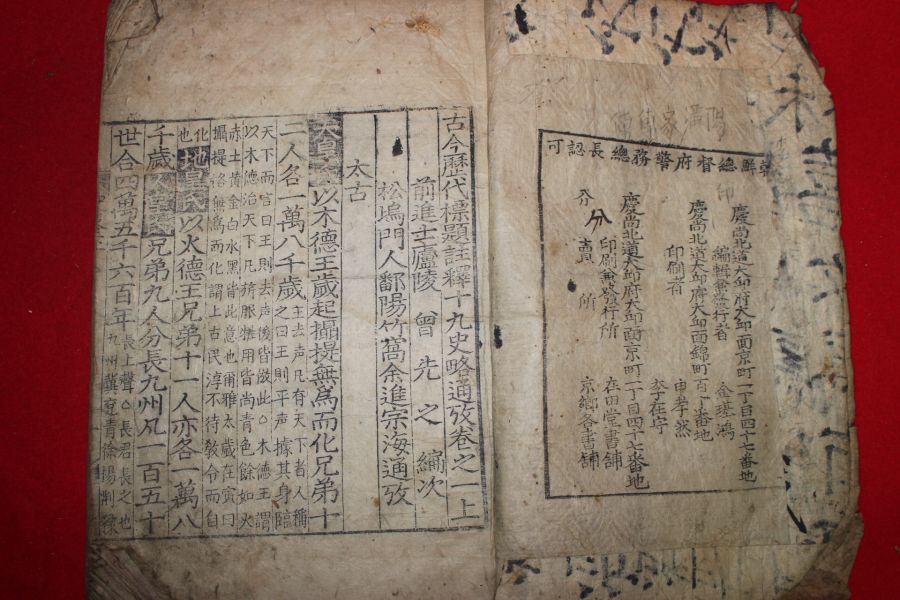 朝鮮總督府警務總長認可
慶尚北道大邱府大邱面京町一丁目四十七番地
編輯兼發行者 金璂鴻
慶尚北道大邱府大邱面錦町百丁番地
印刷者 申孝然
李在宇
慶尚北道大邱府大邱面京町一丁目四十七番地
印刷兼發行所 在田堂書舖
分賣所 京鄉各書舖
分
古今歷代標題註釋十九史略通攷卷之一上
前進士廬陵 曾先之 編次
松塢門人鄱陽竹窩余進宗海通攷
太古
天皇氏以木德王歲起攝提無爲而化兄弟十
二人各一萬八千歲 王去聲凡有天下者人稱
之曰王則平聲據其身臨
天下而言曰王則去聲後皆倣此○木德王謂
以木德治天下凡旂服牲用皆尚青色餘如火
赤土黃金白水黑皆此意也爾雅太歲在寅曰
攝提格無爲而化謂上古民淳不待敎令而自
化也 地皇氏以火德王兄弟十一人亦各一萬八
千歲 人皇氏兄弟九人分長九州凡一百五十
世合四萬五千六百年 長上聲○長君長之也
九州冀兗青徐揚荊豫